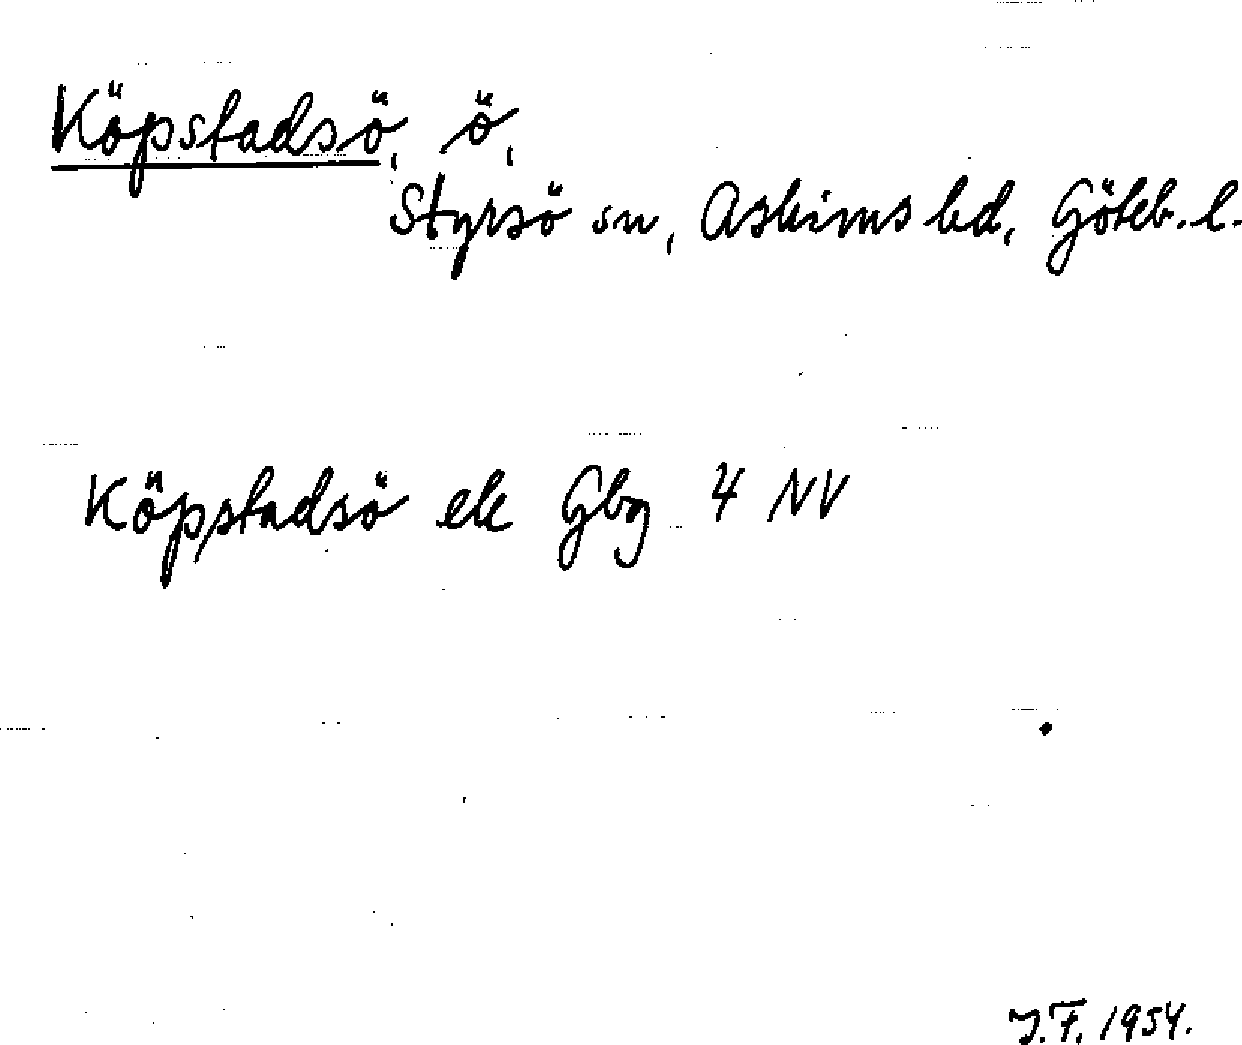 Köpstadsö, ö,
Styrsö sn, Askims hd, Göteb. l.
Köpstadsö ek Gbg 4 NV
J.F. 1954.